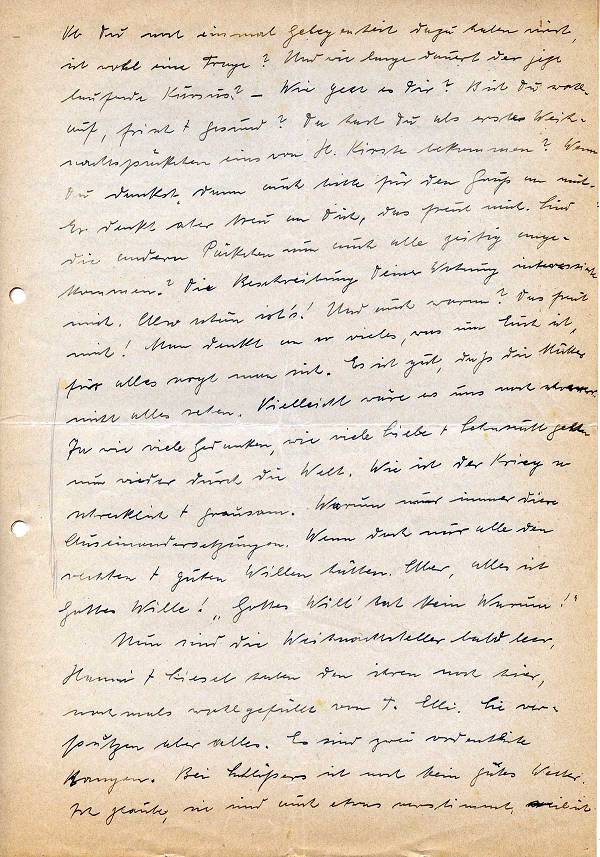 Ob Du noch einmal Gelegenheit dazu haben wirst,
ist wohl eine Frage? Und wie lange dauert der jetzt
laufende Kursus? – Wie geht es Dir? Bist Du wohl-
auf, frisch + gesund? Da hast Du als erstes Weih-
nachtspäckchen eins von H. Kirste bekommen? Wenn
Du denkst, dann auch bitte für den Gruß an mich.
Er denkt aber treu an Dich, das freut mich. Sind
die andern Päckchen nun auch alle richtig ange-
kommen? Die Beschreibung Deiner Wohnung interessierte
mich. Also schön ist's! Und auch warm? Das freut
mich! Man denkt an so vieles, was um Euch ist,
für alles sorgt man sich. Es ist gut, daß die Mütter
nicht alles sehen. Vielleicht wäre es uns noch schwerer.
Ja wie viele Gedanken, wie viele Liebe + Sehnsucht gehen
nun wieder durch die Welt. Wie ist der Krieg so
schrecklich + grausam. Warum nur immer diese
Auseinandersetzungen. Wenn doch nur alle den
rechten + guten Willen hätten. Aber, alles ist
Gottes Wille! „Gottes Will' hat kein Warum!"
Nun sind die Weihnachtsteller bald leer,
Hanni + Liesel haben den ihren noch hier,
nochmals wohlgefüllt von T. Elli. Sie ver-
putzen aber alles. Es sind zwei ordentliche
Rangen. Bei ist noch kein gutes Wetter.
Ich glaube, sie sind auch etwas verstimmt,